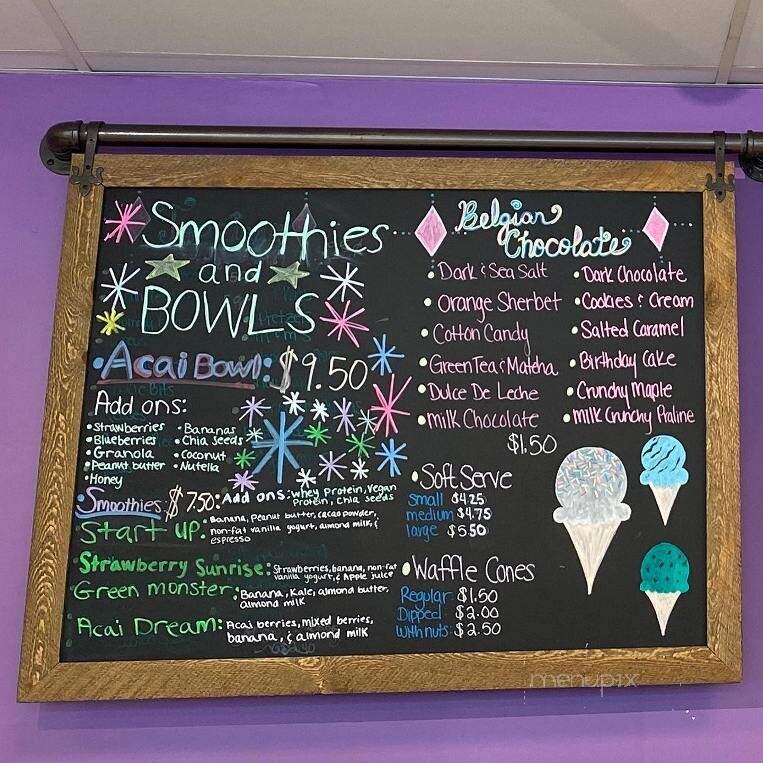 Smoothies
and
BOWLS
• Acai Bowl: $9.50
Add ons:
• Strawberries • Bananas
• Blueberries • Chia seeds
• Granola • Coconut
• Peanut butter • Nutella
• Honey
Smoothies $7.50: Add ons: Whey Protein, Vegan
Protein, Chia seeds
Start up: Banana, Peanut butter, cacao powder,
non-fat vanilla yogurt, almond milk, &
espresso
Strawberry Sunrise: Strawberries, banana, non-fat
vanilla yogurt, & Apple juice
Green monster: Banana, Kale, almond butter,
almond milk
Acai Dream: Acai berries, mixed berries,
banana, & almond milk
Belgian
Chocolate
• Dark & Sea Salt • Dark Chocolate
• Orange Sherbet • Cookies & Cream
• Cotton Candy • Salted Caramel
• Green Tea & Matcha • Birthday Cake
• Dulce De Leche • Crunchy Maple
• Milk Chocolate • Milk Crunchy Praline
$1.50
• Soft Serve
Small $4.25
medium $4.75
large $5.50
• Waffle Cones
Regular $1.50
Dipped $2.00
With nuts $2.50
menupix